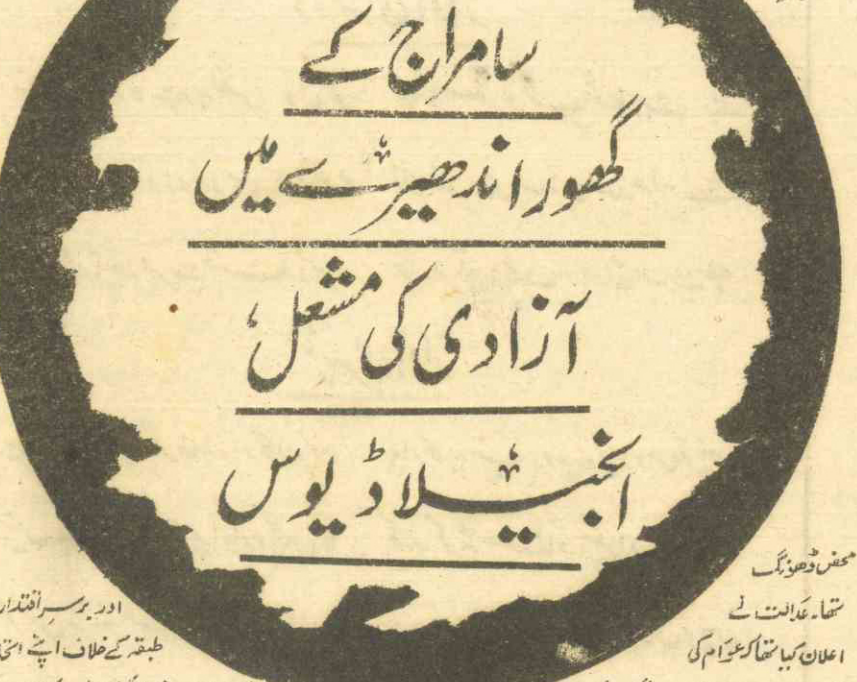 سامراج کے
گھور اندھیرے میں
آزادی کی مشعل،
انجیلا ڈیوس
محض ڈھونگ
تھا۔ عدالت نے
اعلان کیا تھا کہ عوام کی
اور برسر اقتدار
طبقہ کے خلاف اپنے